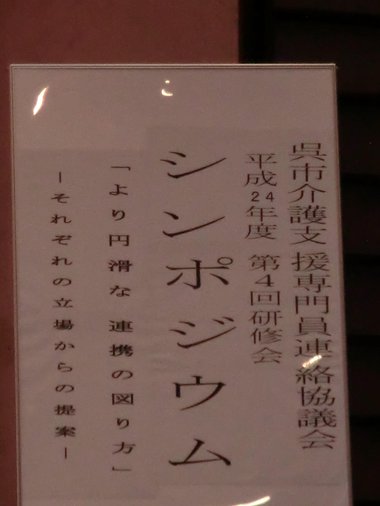 呉市介護支援専門員連絡協議会
平成24年度 第4回研修会
シンポジウム
「より円滑な 連携の図り方」
ーそれぞれの立場からの提案ー